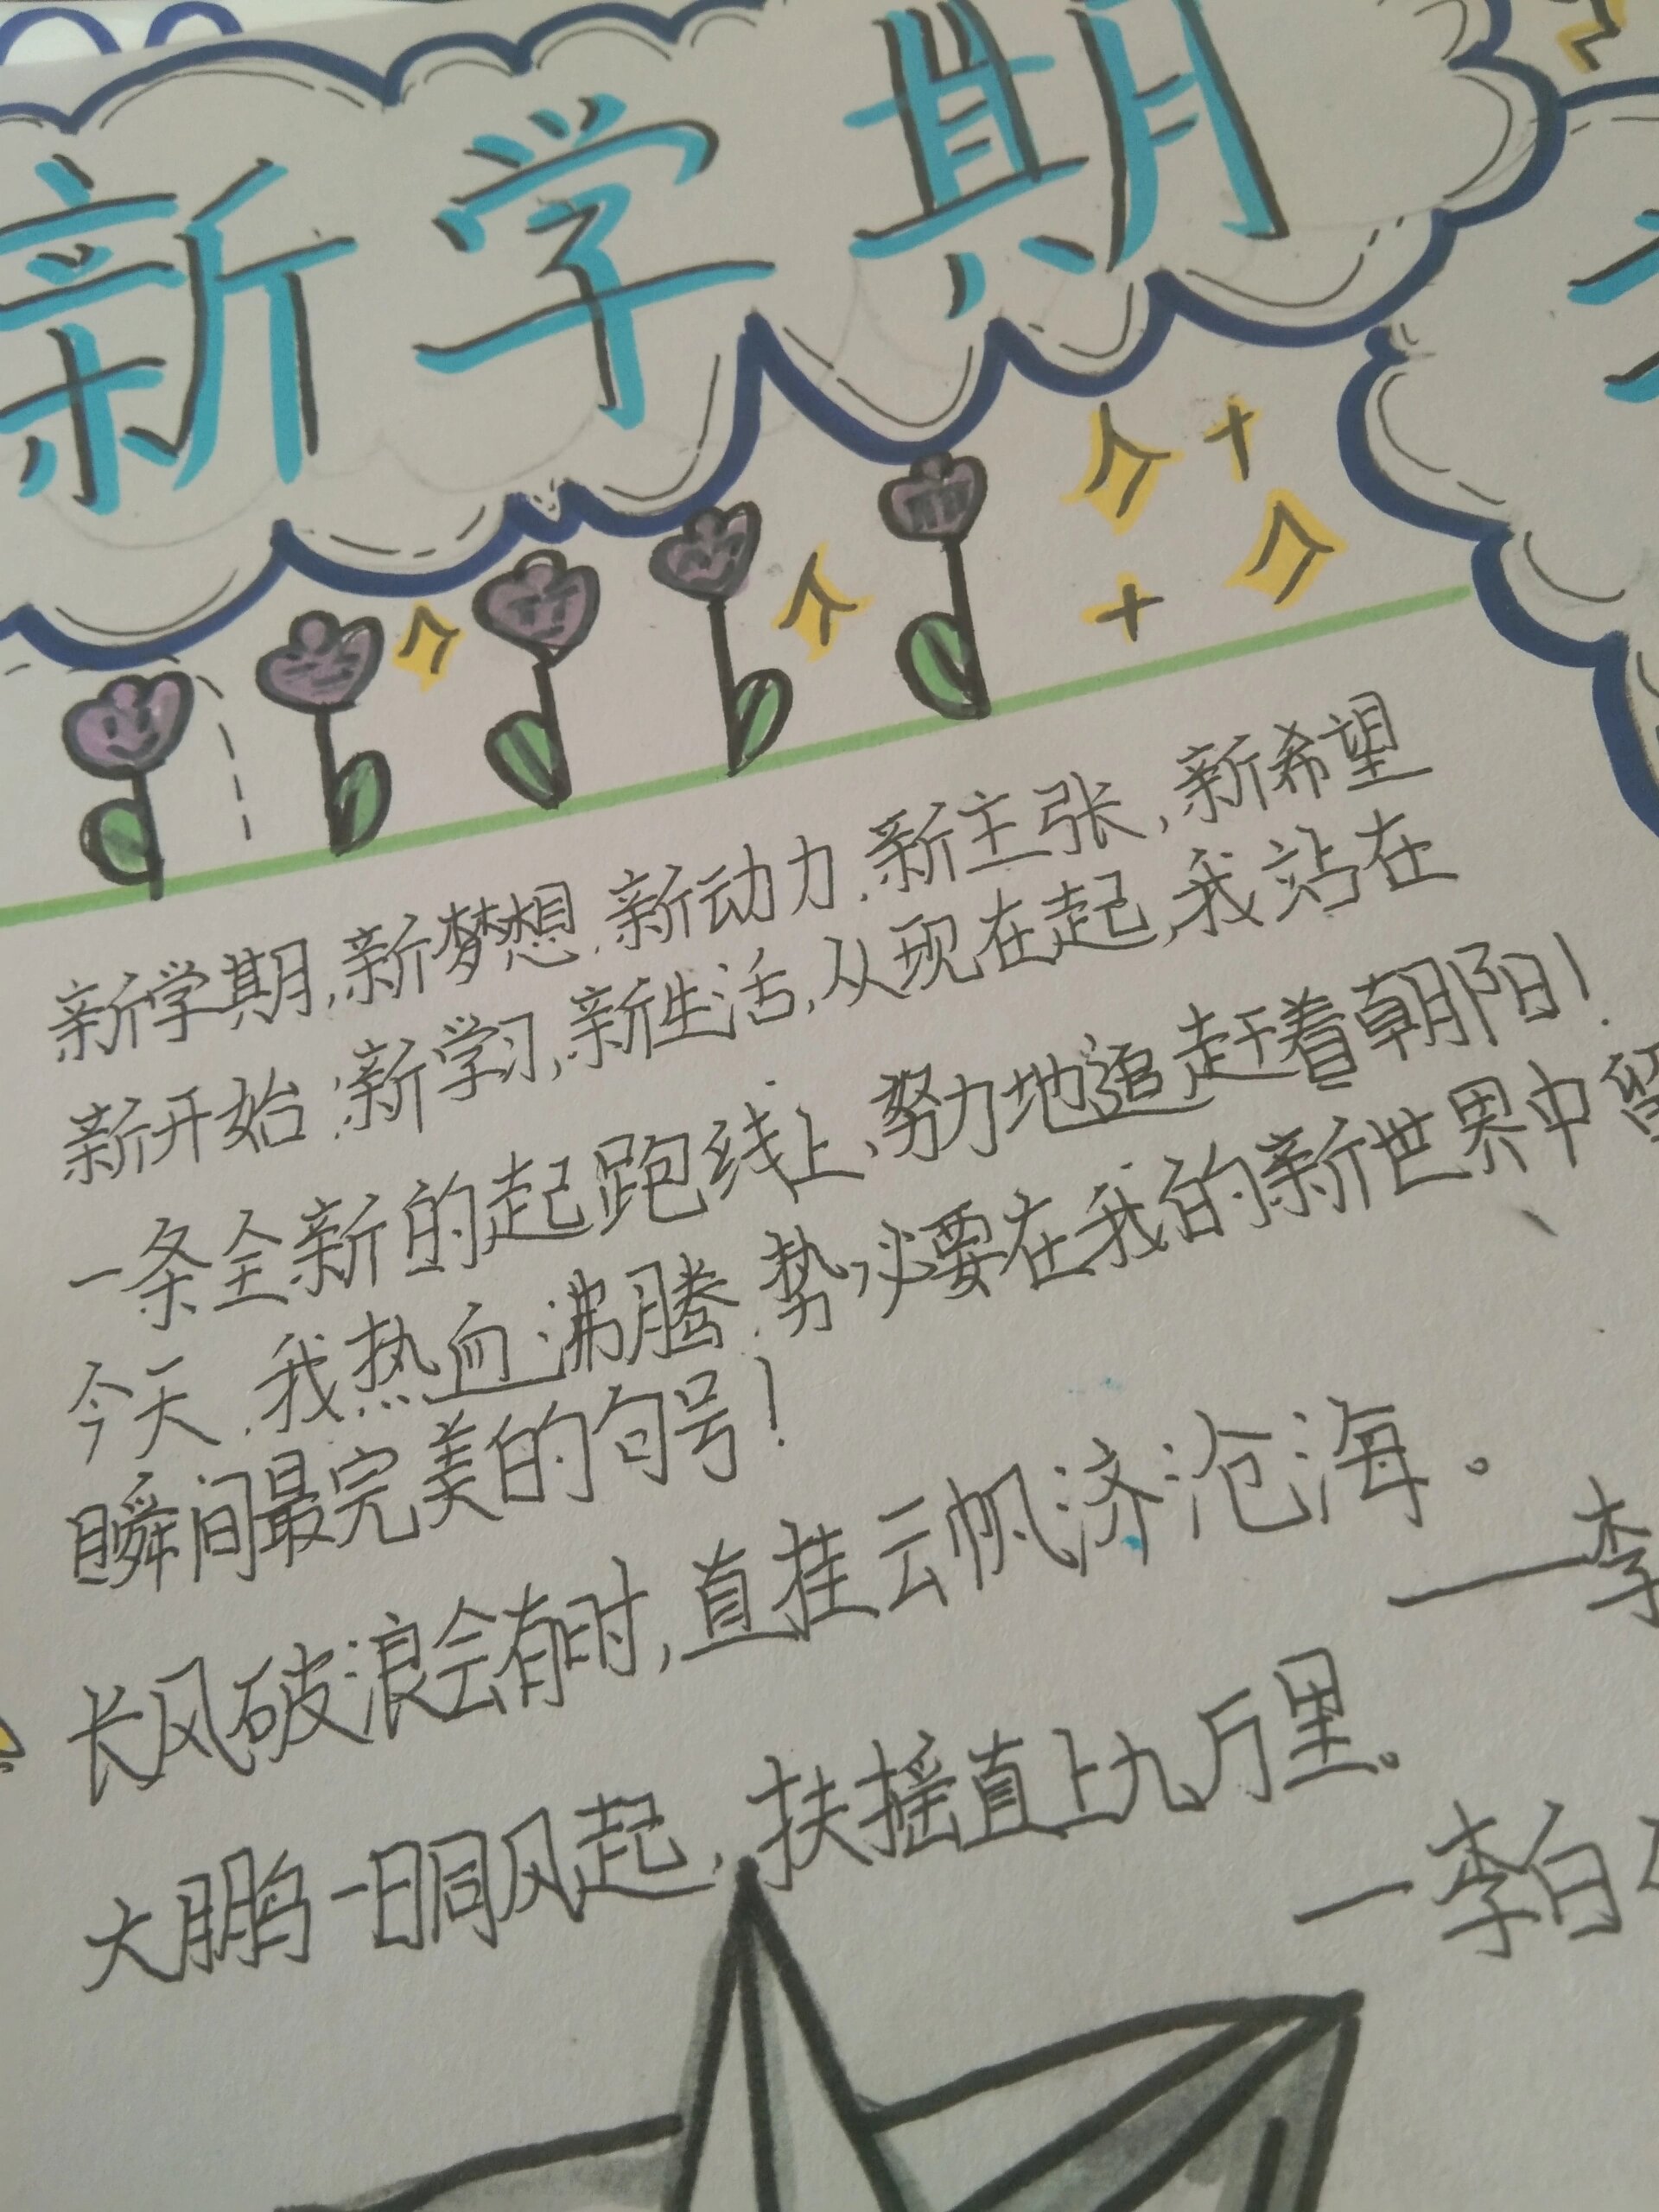 新学期
新学期,新梦想,新动力,新主张,新希望
新开始,新学习,新生活,从现在起,我站在
一条全新的起跑线上、努力地追赶着朝阳!
今天,我热血沸腾,势必要在我的新世界中留
瞬间最完美的句号!
长风破浪会有时,直挂云帆济沧海。
——李
大鹏一日同风起,扶摇直上九万里。
—李白